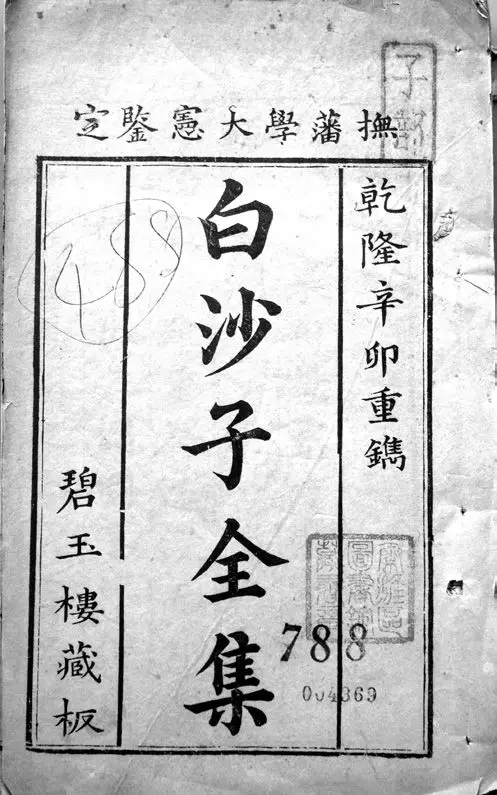 撫藩學大憲鑒定
乾隆辛卯重鐫
白沙子全集
碧玉樓藏板
788
004369
488
子